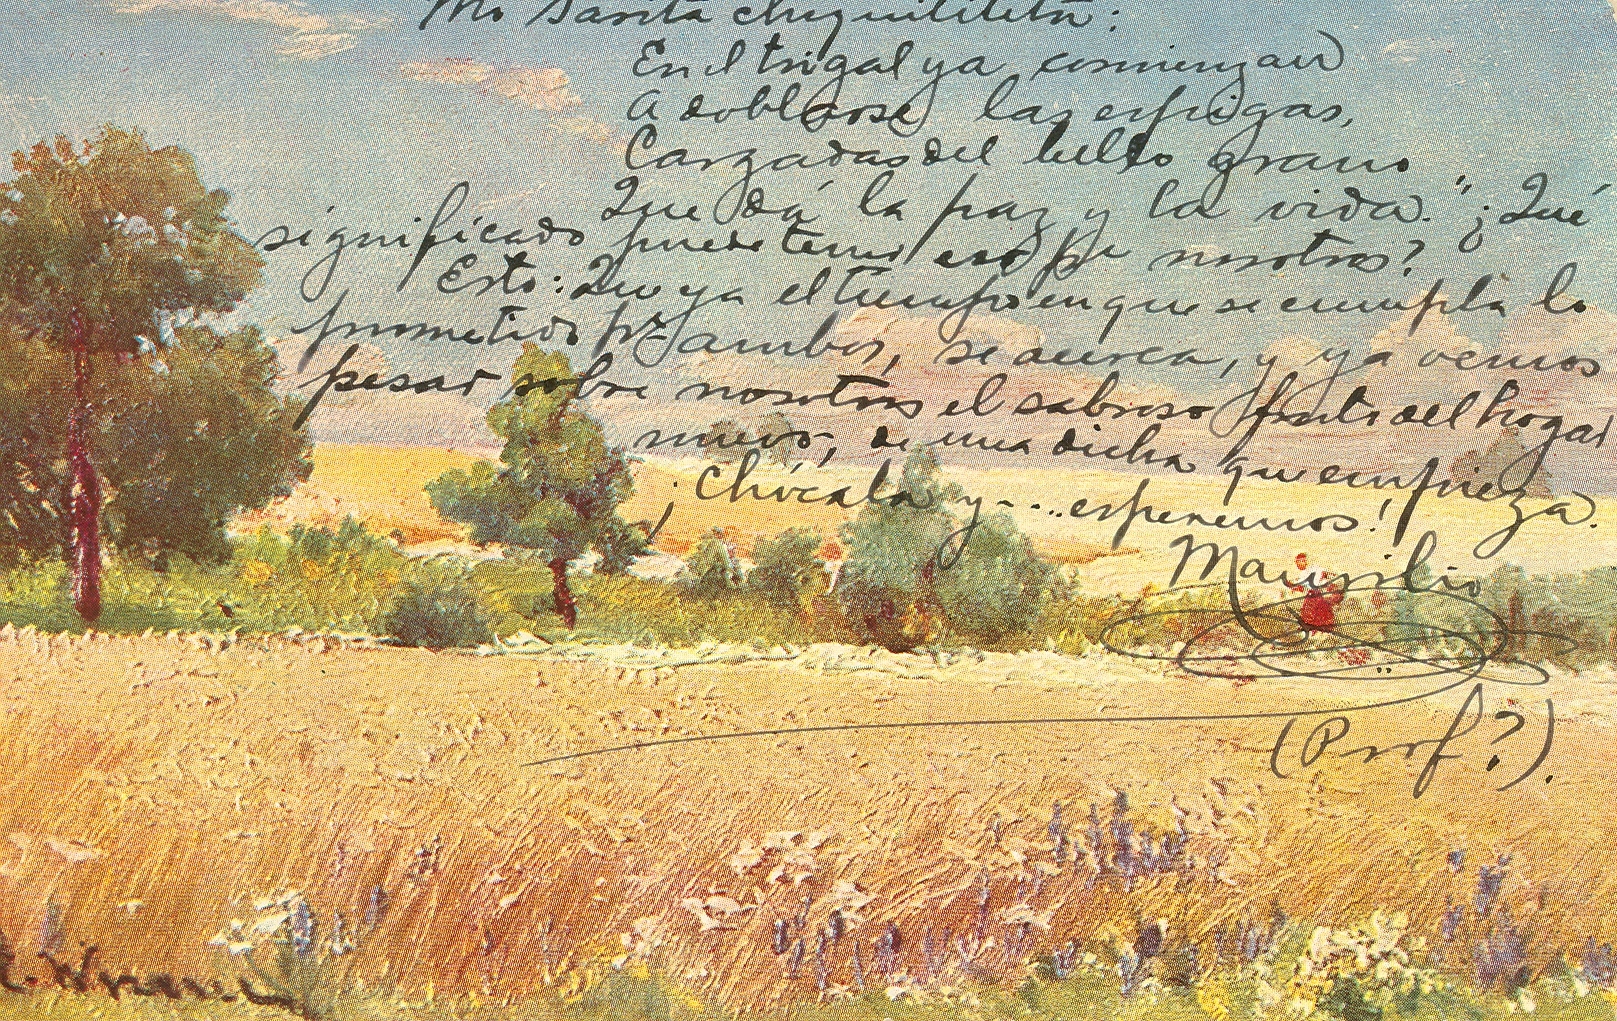 Mi Sarita chiquititita:
En el trigal ya comienzan
A doblarse las espigas,
Cargadas del bello grano
Que dá la paz y la vida. ¿Qué
significado puede tener eso pa nosotros?
Esto: Que ya el tiempo en que se cumpla lo
prometido por ambos, se acerca, y ya vemos
pesar sobre nosotros el sabroso fruto del hogar
nuevo, de una dicha que empieza.
¡Chócala y....esperemos!
Maurilio
(Prof?).